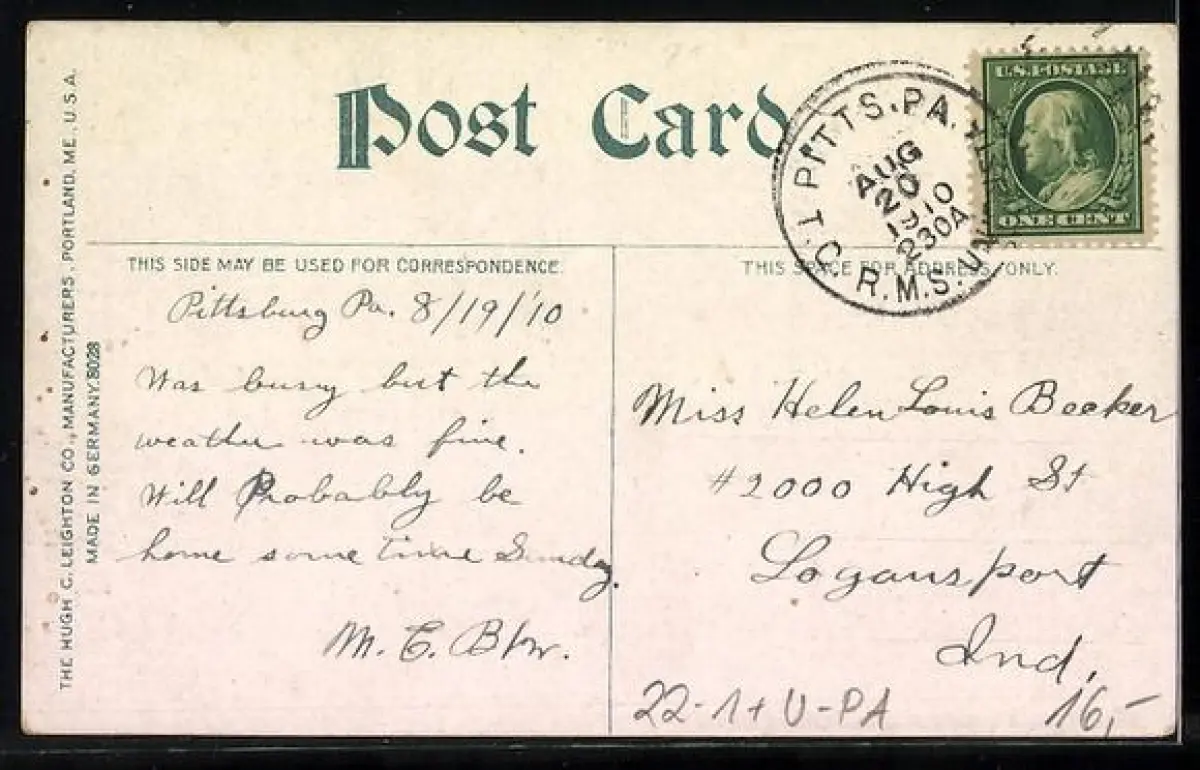 Post Card
PITTS. PA.
AUG
20
1910
230A
T. C.
R.M.S.
U.S. POSTAGE
ONE CENT
THIS SIDE MAY BE USED FOR CORRESPONDENCE.
THIS SPACE FOR ADDRESS ONLY.
Pittsburg Pa. 8/19/'10
Was busy but the
weather was fine.
Will Probably be
home some time Sunday.
M. E. 
Miss Helen Louis Booker
#2000 High St
Logansport
Ind.
22-1+U-PA
16,-
THE HUGH C. LEIGHTON CO., MANUFACTURERS, PORTLAND, ME., U.S.A.
MADE IN GERMANY. 8028